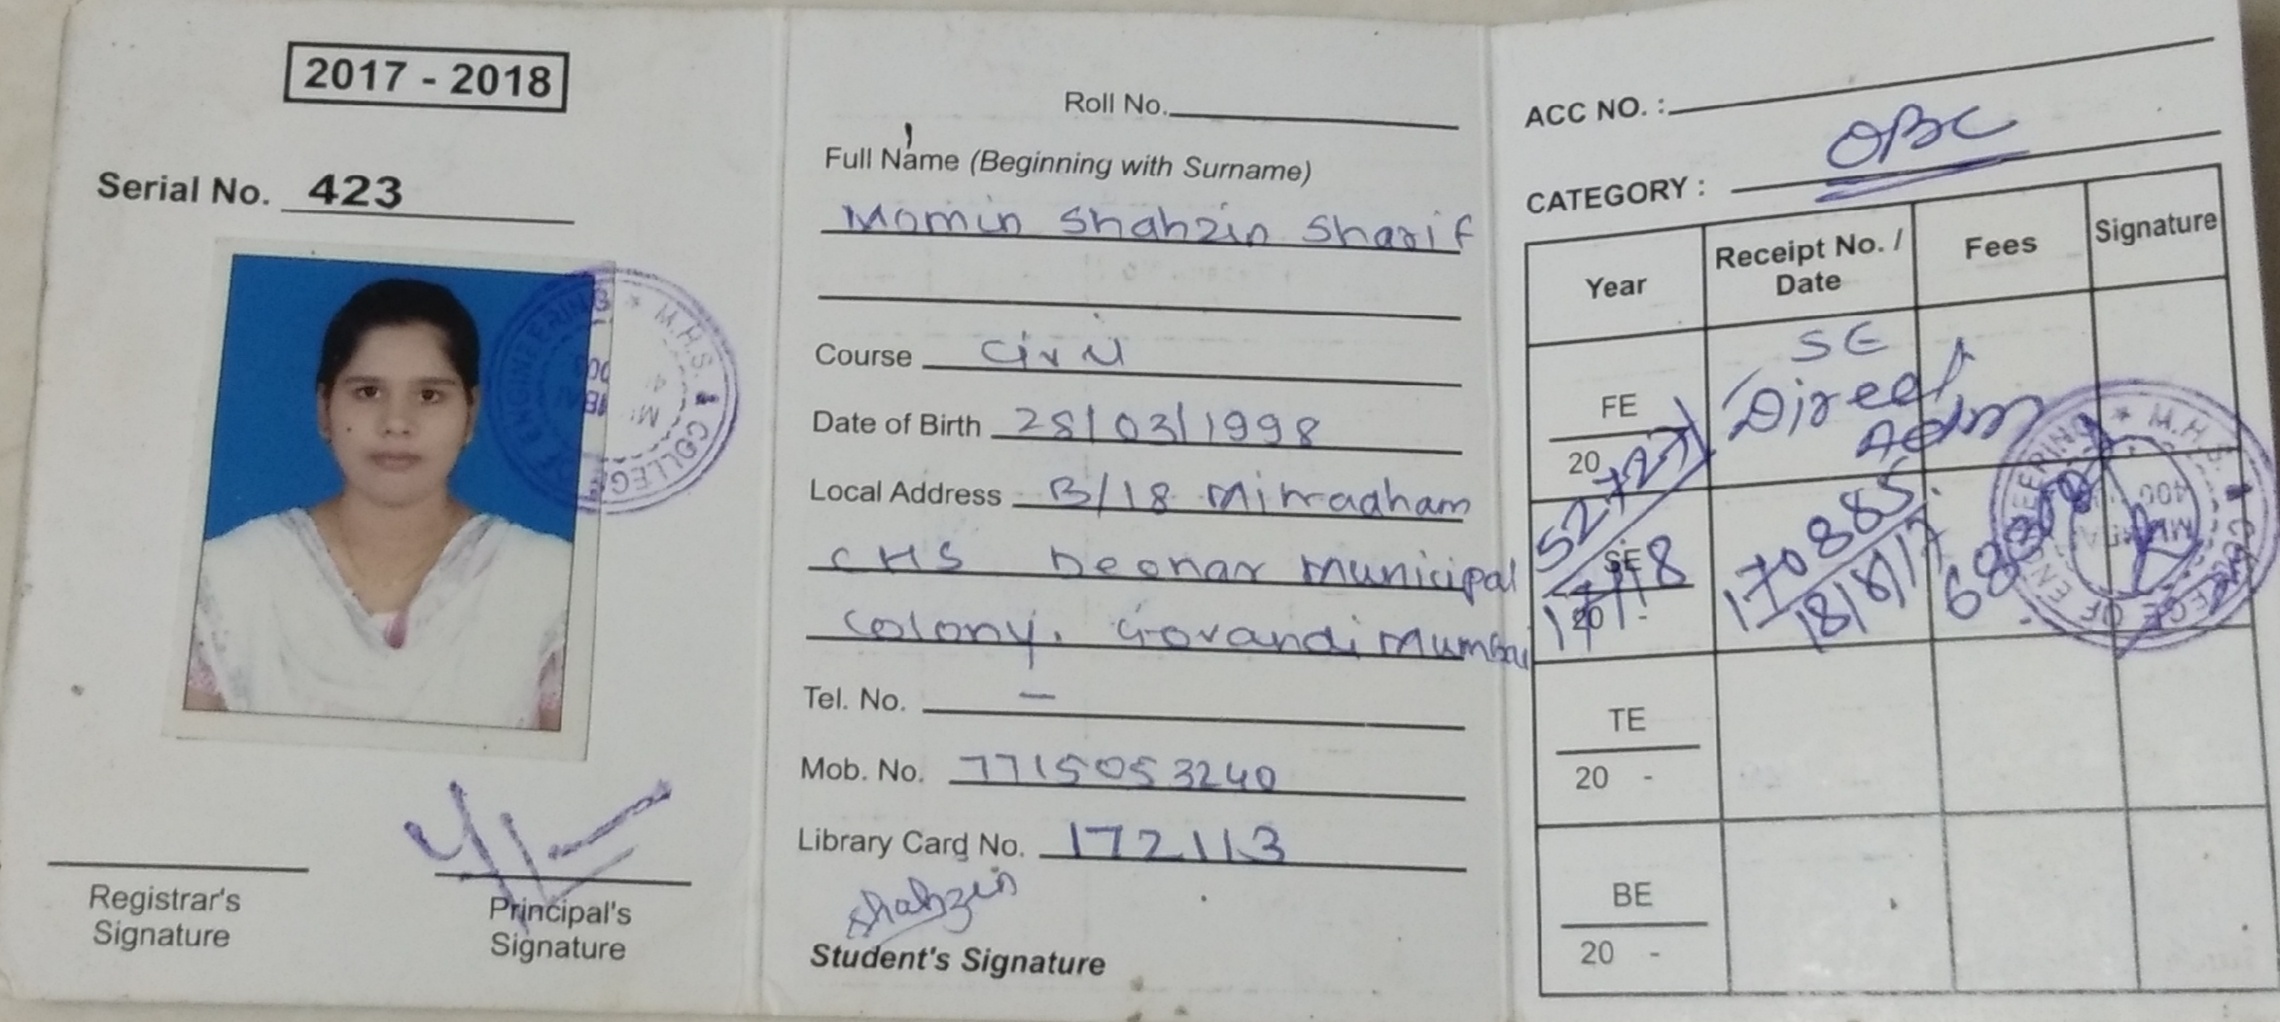 2017 - 2018
Serial No. 423
Registrar's
Signature
Principal's
Signature
Roll No.
Full Name (Beginning with Surname)
Momin Shahzin Sharif
Course Civil
Date of Birth 28/03/1998
Local Address B/18 Mitradham
CHS Deonar Municipal
colony. Govandi Mumbai
Tel. No. —
Mob. No. 7715053240
Library Card No. 172113
Shahzin
Student's Signature
ACC NO. :
CATEGORY : OBC
Year Receipt No. / Date Fees Signature
FE
20
SE
Direct
Adm
52727
SE
20 -
17/18
170885
18/8/17
M.H.S. COLLEGE OF ENGINEERING
TE
20 -
BE
20 -